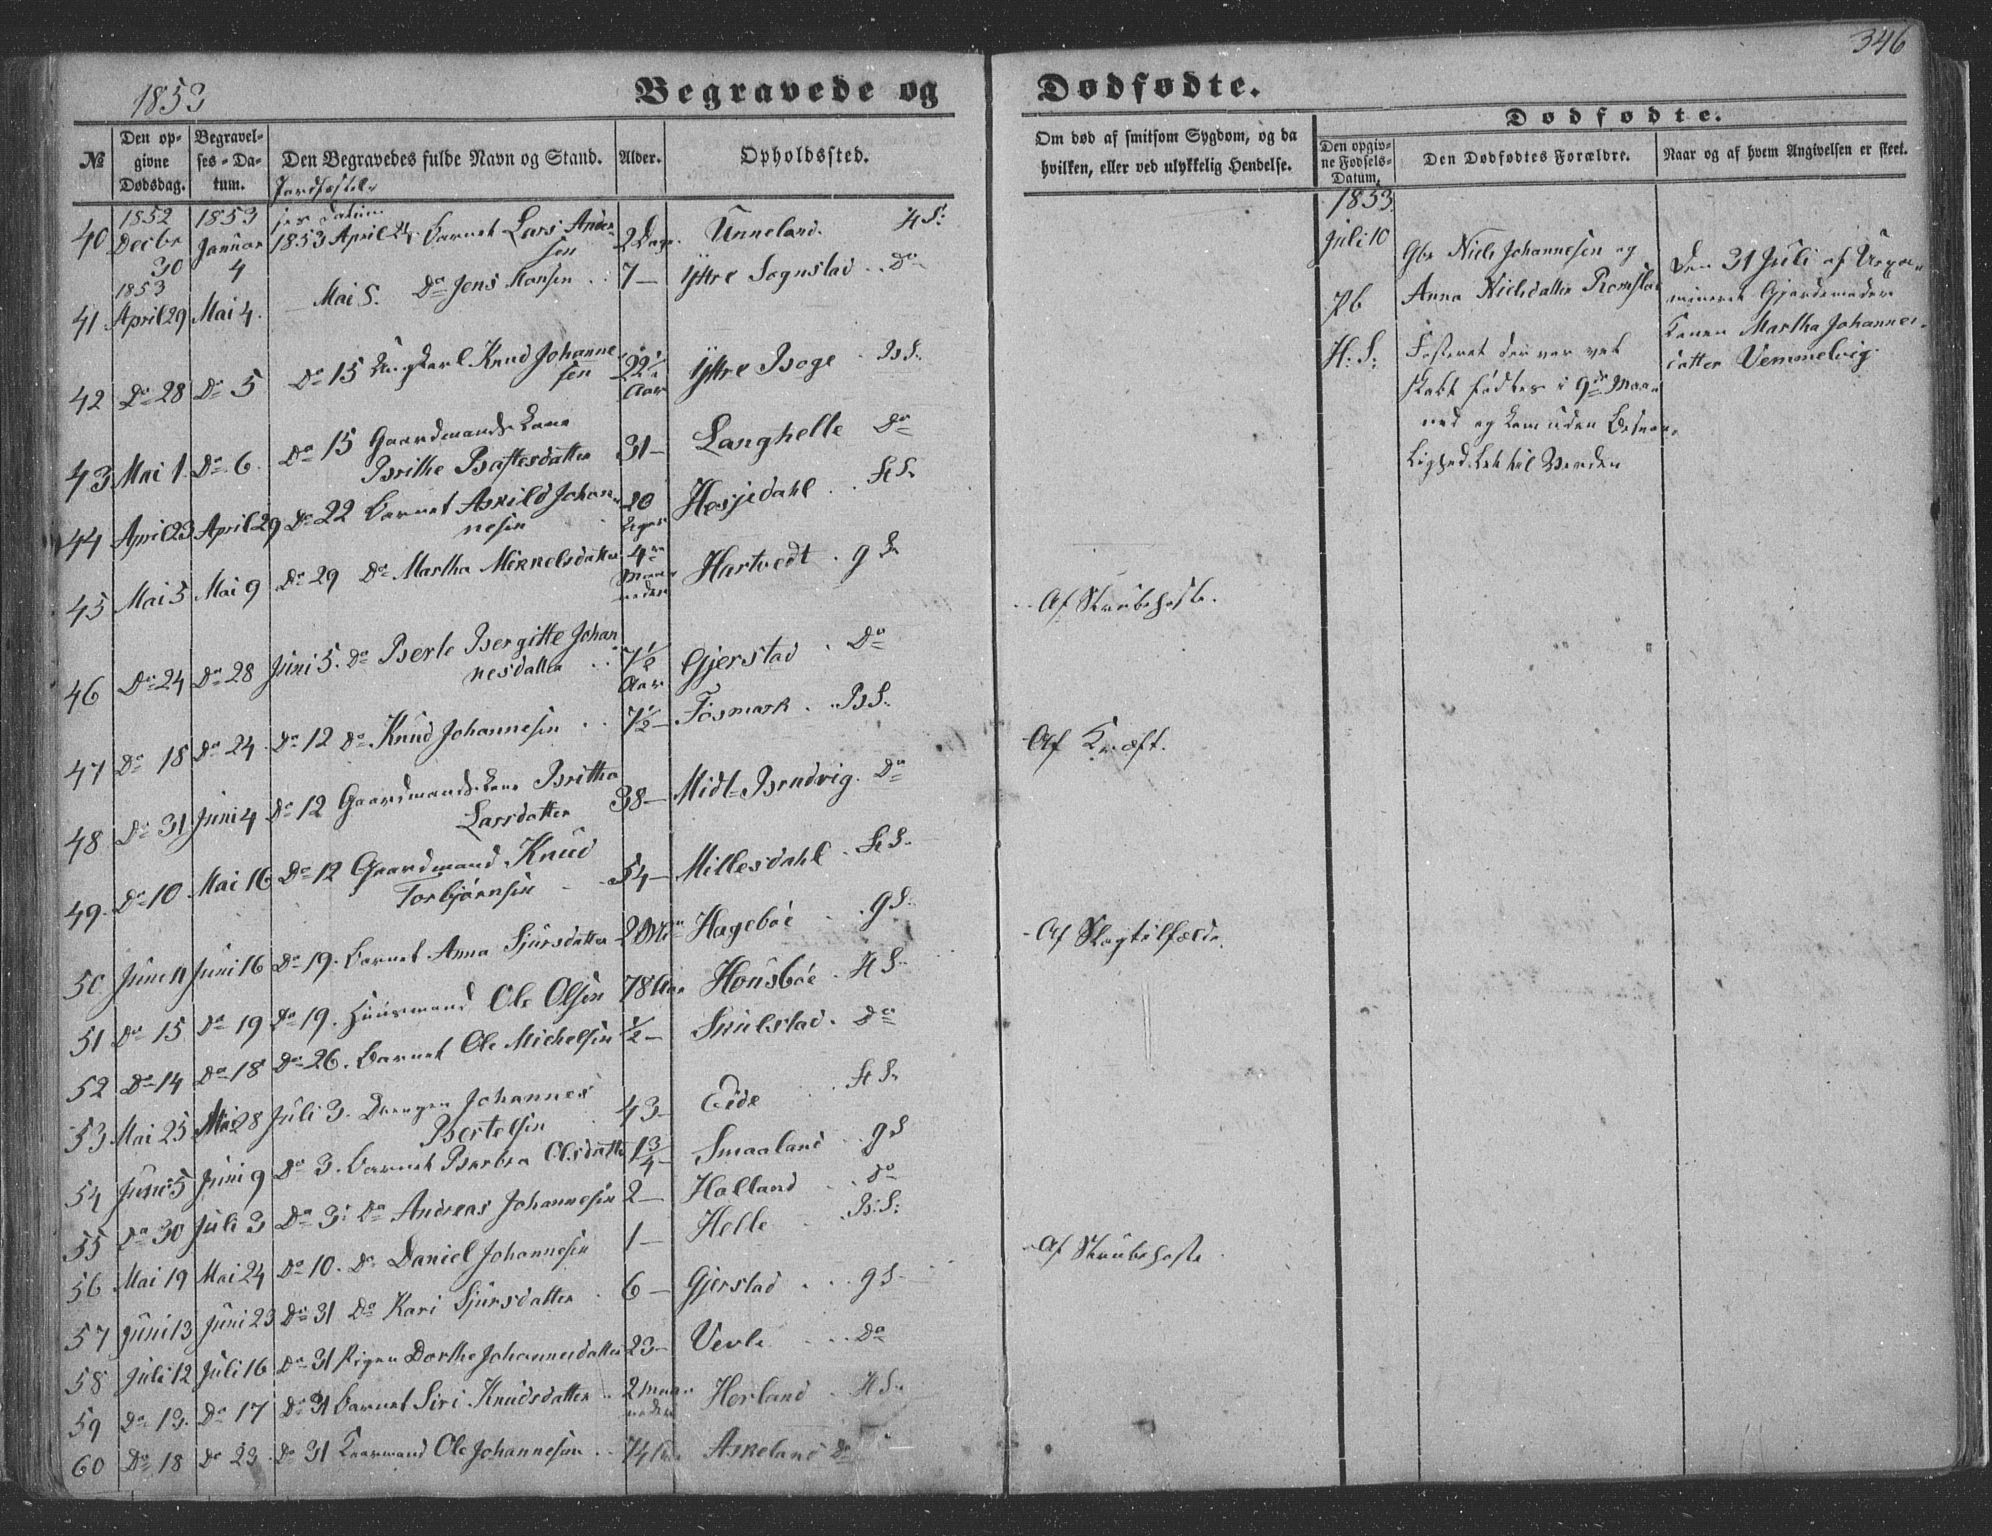 346
1853
Begravede og Dødfødte.
№
Den opgivne Dødsdag.
Begravelses-Datum.
Den Begravedes fulde Navn og Stand.
Alder.
Opholdssted.
Om død af smitsom Sygdom, og da hvilken, eller ved ulykkelig Hendelse.
Dødfødte.
Den opgivne Fødsels-Datum.
Den Dødfødtes Forældre.
Naar og af hvem Angivelsen er skeet.
40 1852 Decbr 30 1853 Januar 4 1853 April 24 Barnet Lars Andersen 2 Dage Unneland. H S:
41 1853 April 29 Mai 4. Mai 5. Do Jens Hansen 7 — Yttre Sognstad Do
42 Do 28 Do 5 Do 15 Ungkarl Knud Johannesen 22½ Aar Yttre Boge B S.
43 Mai 1. Do 6. Do 15 Gaardmandskone Brithe Baftesdatter 31 — Langhelle Do
44 April 23 April 29 Do 22 Barnet Askild Johannesen 20 Hosjedahl St S.
45 Mai 5 Mai 9 Do 29 Do Martha Mikkelsdatter 4 Maaneder Hartvedt g S. Af Strubehoste.
46 Do 24 Do 28 Juni 5. Do Berle Bergitte Johannesdatter 7½ Aar Gjerstad Do
47 Do 18 Do 24 Do 12 Do Knud Johannesen 7½ — Fosmark B S. Af Kræft.
48 Do 31 Juni 4 Do 12 Gaardmandskone Britha Larsdatter 38 — Midt-Brudvig. Do
49. Do 10 Mai 16 Do 12 Gaardmand Knud Torbjørnsen 54 — Millesdahl St S.
50 Juni 11 Juni 16 Do 19. Barnet Anna Sjursdatter Hagebøe g S. Af Slagtilfælde.
51 Do 15 Do 19 Do 19. Huusmand Ole Olsen 78 Aar Housbøe H S.
52 Do 14 Do 18 Do 26. Barnet Ole Michelsen ½ — Snulstad. Do
53 Mai 25 Mai 28 Juli 3. Drengen Johannes Bertelsen 43 — Eide St S.
54 Juni 5 Juni 9 Do 3. Barnet Barbra Olsdatter 1¾ — Smaaland g S
55 Do 30 Juli 3 Do 3: Do Andreas Johannesen 2 — Halland Do
56 Mai 19 Mai 24 Do 10. Do Daniel Johannesen 1 — Helle B: S: Af Strubehoste
57 Juni 13 Juni 23 Do 31 Do Kari Sjursdatter 6 — Gjerstad g S.
58 Juli 12 Juli 16 Do 31 Pigen Dorthe Johannesdatter 23 — Vevle Do
59 Do 13. Do 17 Do 31 Barnet Siri Knudsdatter 2 Maaneder Herland H S.
60 Do 18 Do 23. Do 31 Ole Johannesen 74 Askeland Do
1853.
Juli 10
H: S:
Gbr Niels Johannesen og
Anna Nielsdatter Romslo
Fosteret der var vel
skabt fødtes i 9de Maa-
ned og kom uden
til Verden
Den 31 Juli af Uexa-
mineret Gjordemoder
Konen Martha Johannes-
datter Vemmelvig.